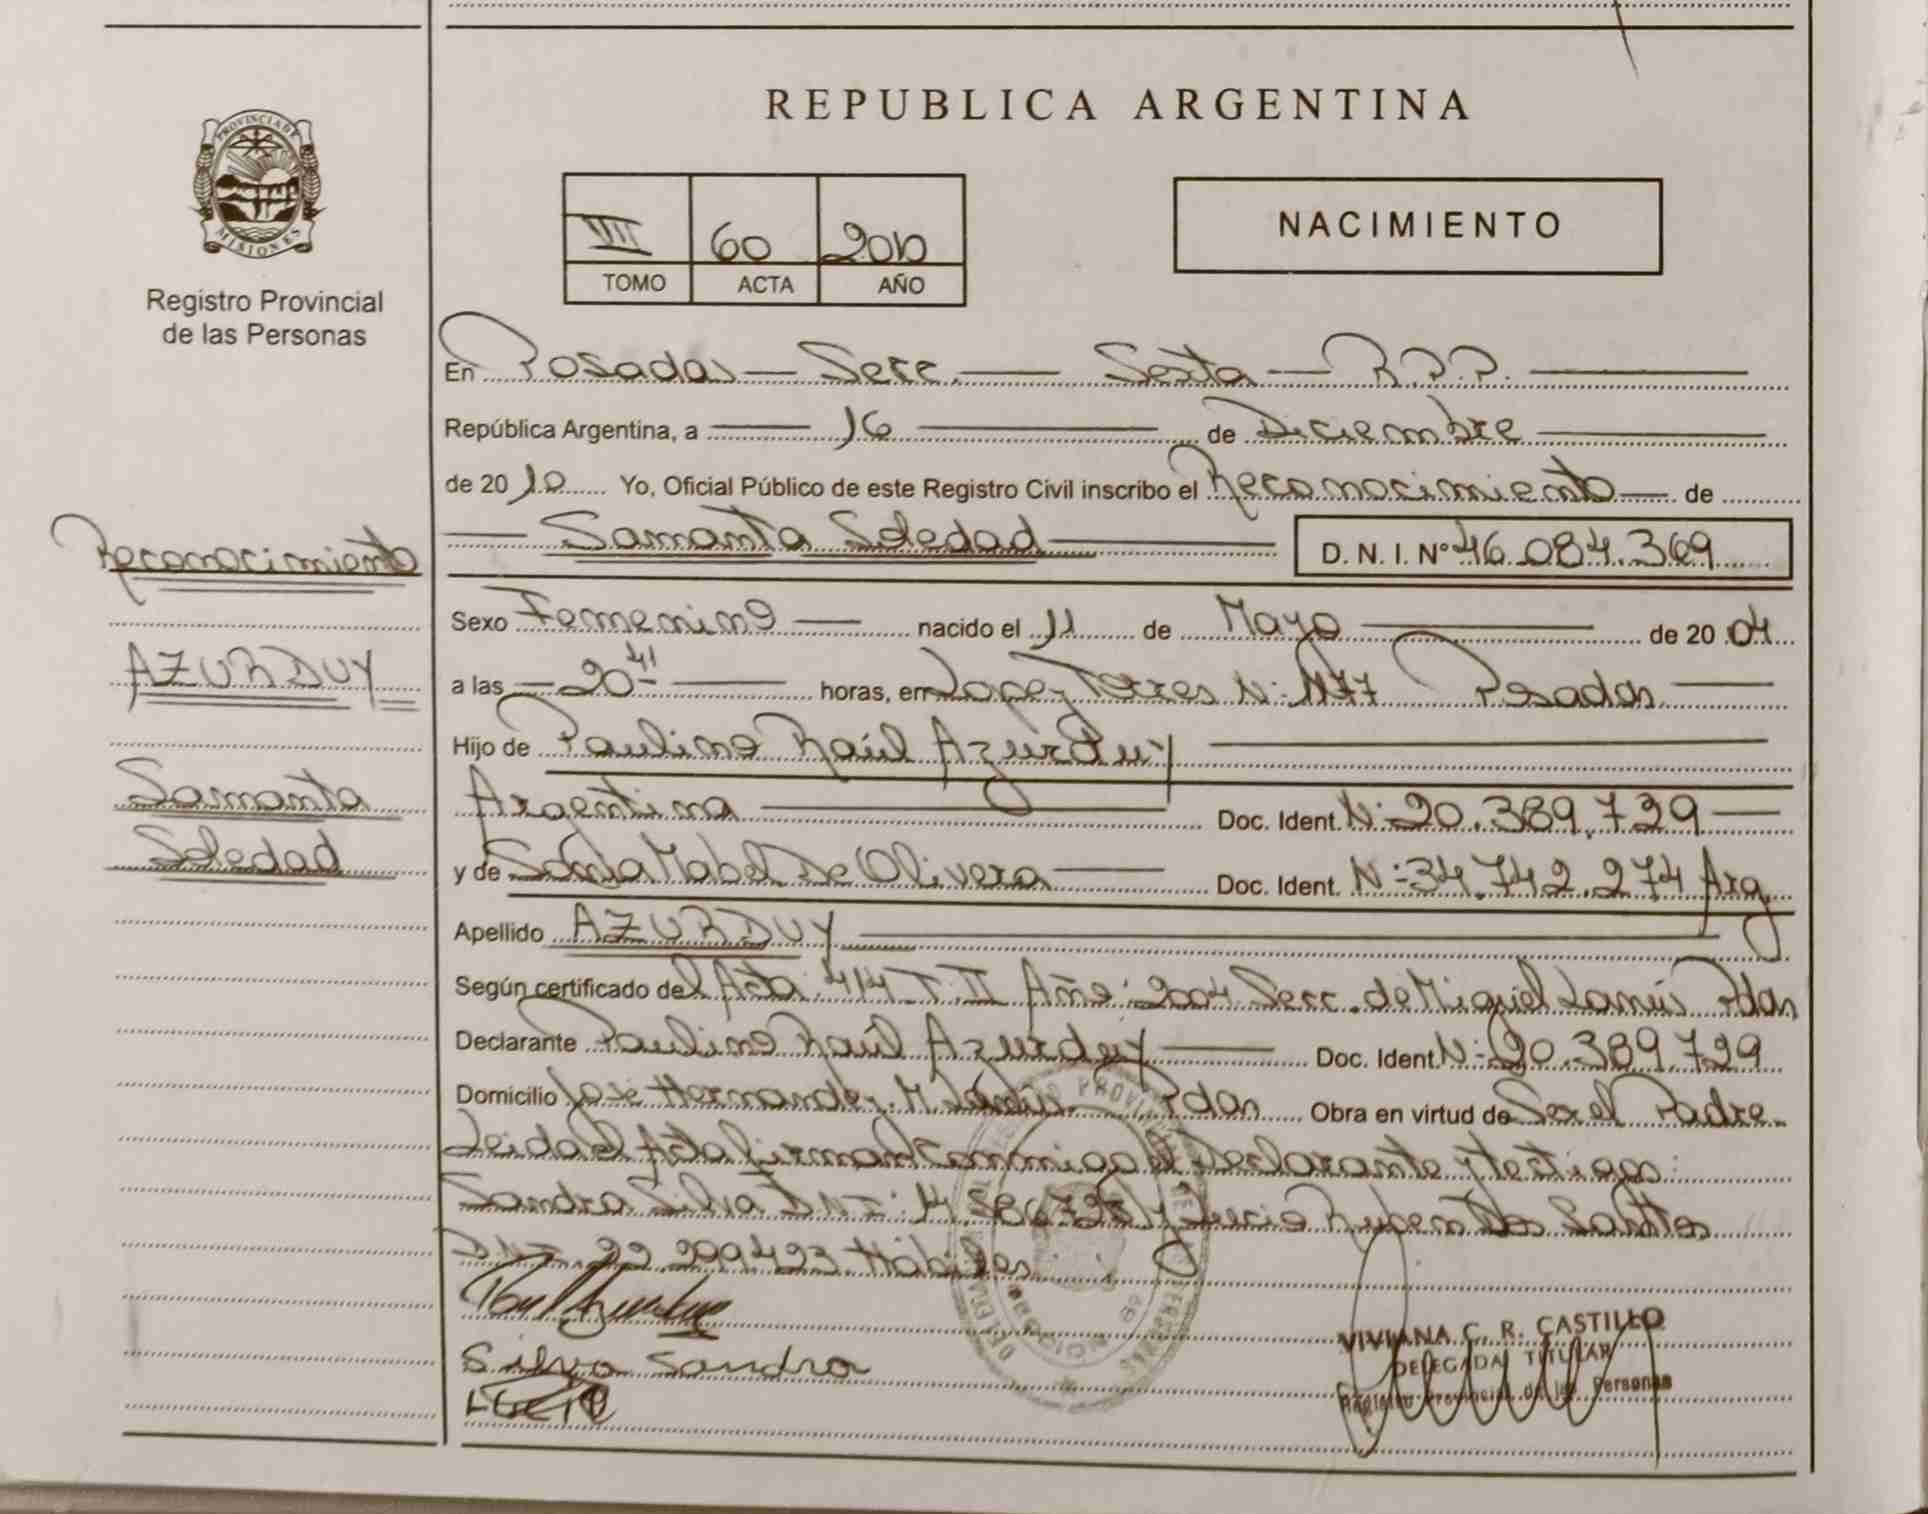 REPUBLICA ARGENTINA
PROVINCIA DE MISIONES
Registro Provincial
de las Personas
VIII 60 2010
TOMO ACTA AÑO
NACIMIENTO
En Posadas — Secc. — Sexta — R.P.P. —
República Argentina, a — 16 — de Diciembre —
de 2010 Yo, Oficial Público de este Registro Civil inscribo el Reconocimiento — de
— Samanta Soledad — D. N. I. Nº 46.084.369
Reconocimiento
AZURDUY
Samanta
Soledad
Sexo Femenino — nacido el 11 de Mayo — de 2004
a las — 20 41 — horas, en Lopez Torres N: 1177 Posadas —
Hijo de Paulino Raúl Azurduy —
Argentino — Doc. Ident. N: 20.389.729 —
y de Sonia Mabel De Olivera — Doc. Ident. N: 34.742.274 Arg
Apellido AZURDUY —
Según certificado del Acta 414 T. II Año: 2004 Secc. de Miguel Lanús Pdas
Declarante Paulino Raúl Azurduy — Doc. Ident. N: 20.389.729
Domicilio M. Lanús Pdas Obra en virtud de Ser el Padre.
Leida el Acta firman el declarante y testigos:
Sandra Silva
Silva Sandra
VIVIANA C. R. CASTILLO
DELEGADA TITULAR
Registro Provincial de las Personas